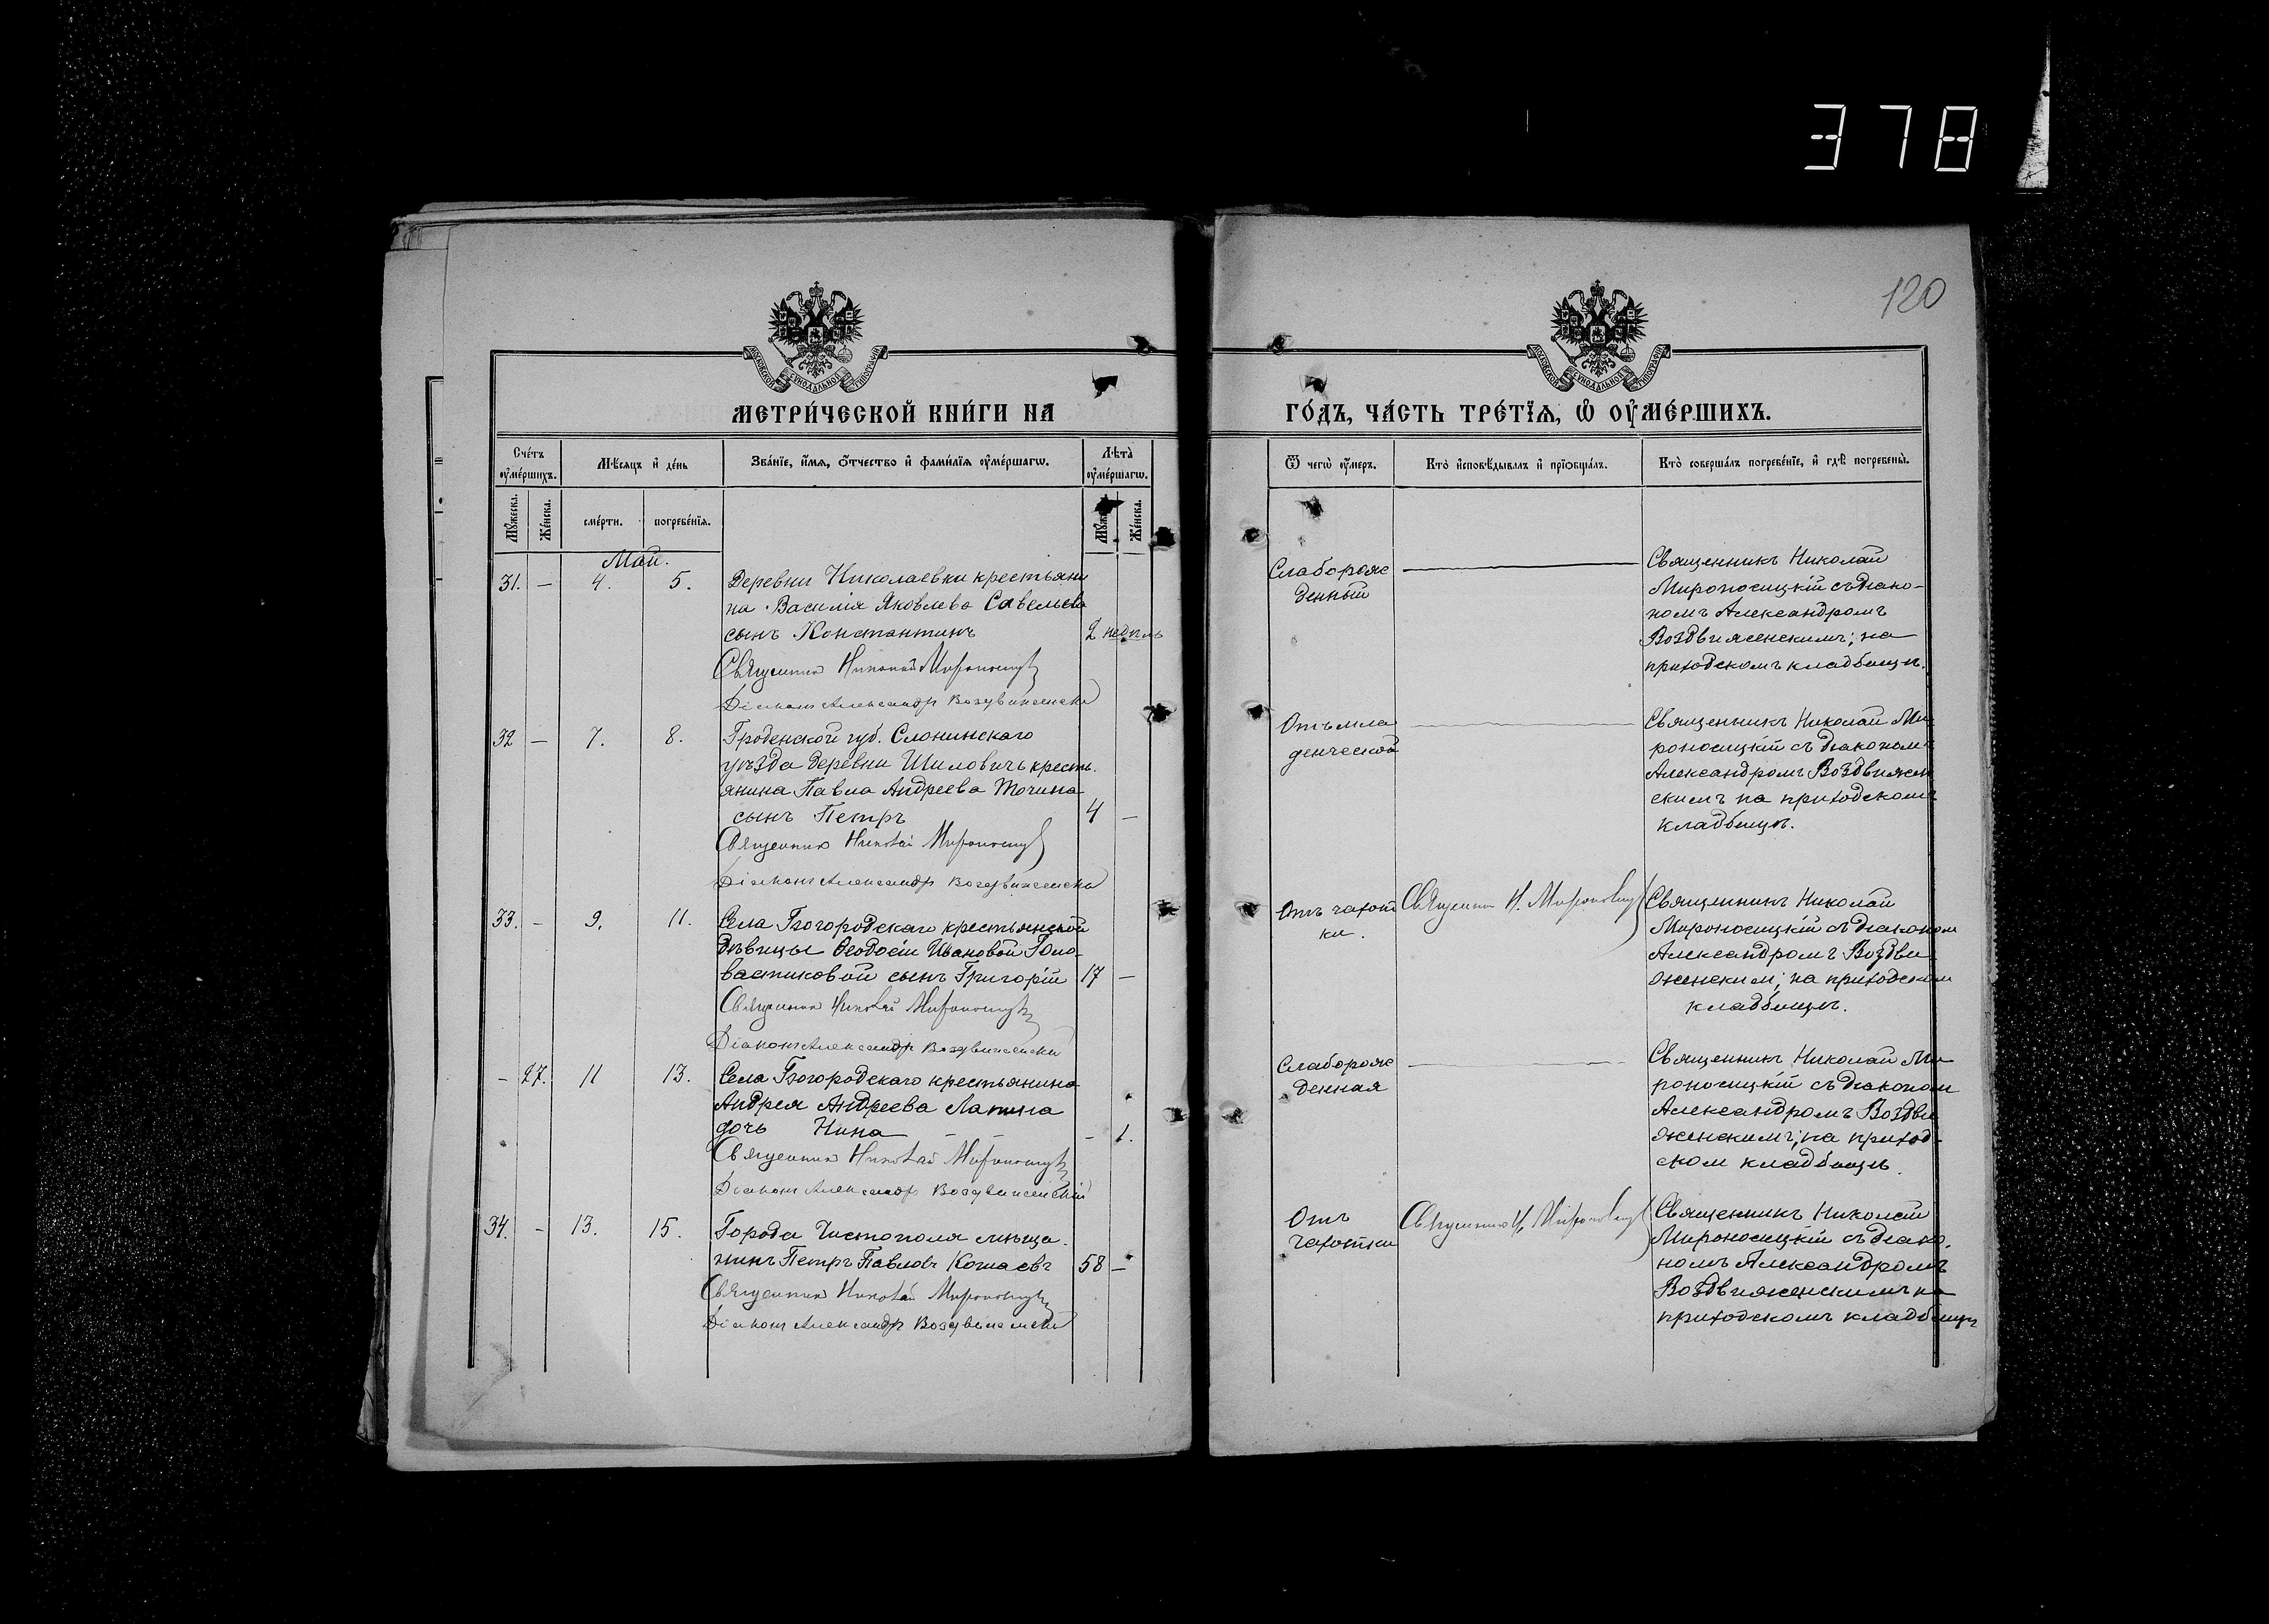 378
120
МОСКОВСКОЙ СѴНОДАЛЬНОЙ ТИПОГРАФІИ
МОСКОВСКОЙ СѴНОДАЛЬНОЙ ТИПОГРАФІИ
МЕТРИ́ЧЕСКОЙ КНИ́ГИ НА
ГО́ДЪ, ЧА́СТЬ ТРЕ́ТЇѦ, Ѡ҆ ОУ҆МЕ́РШИХЪ.
Сче́тъ оу҆ме́ршихъ.
Мѣ́сяцъ и҆ де́нь
Зва́нїе, и҆́мя, ѻ҆́тчество и҆ фами́лїя оу҆ме́ршагѡ.
Лѣ́та̀ оу҆ме́ршагѡ.
Ѿ чегѡ̀ оу҆́меръ.
Кто̀ и҆сповѣ́дывалъ и҆ прїобща́лъ.
Кто̀ соверша́лъ погребе́нїе, и҆ гдѣ̀ погребены̀.
Мꙋ́жеска.
Же́нска.
сме́рти.
погребе́нїя.
Мꙋ́же
Же́нска.
Май.
31. — 4. 5. Деревни Николаевки крестьяни
на Василія Яковлева Савельева
сынъ Константинъ 2 недѣль
Священникъ Николай Мироносицкій
Діаконъ Александръ Воздвиженскій
Слаборож
денный
Священникъ Николай
Мироносицкій съ діако-
номъ Александромъ
Воздвиженскимъ; на
приходскомъ кладбищѣ.
32 — 7. 8. Гроденской губ. Слонинскаго
уѣзда деревни Шиловичъ кресть-
янина Павла Андреева Точина
сынъ Петръ 4 —
Священникъ Николай Мироносицкій
Діаконъ Александръ Воздвиженскій
Отъ мла
денческой
Священникъ Николай Ми
роносицкій съ діакономъ
Александромъ Воздвижен
скимъ на приходскомъ
кладбищѣ.
33. — 9. 11. Села Богородскаго крестьянской
дѣвицы Ѳеодосіи Ивановой Голо-
вастиковой сынъ Григорій 17 —
Священникъ Николай Мироносицкій
Діаконъ Александръ Воздвиженскій
Отъ чахот
ки.
Священникъ Н. Мироносицкій
Священникъ Николай
Мироносицкій съ діаконом
Александромъ Воздви
женским; на приходском
кладбищѣ.
— 27. 11 13. Села Богородскаго крестьянина
Андрея Андреева Лапина
дочь Нина — — — 1.
Священникъ Николай Мироносицкій
Діаконъ Александръ Воздвиженскій
Слаборож
денная
Священникъ Николай Ми
роносицкій съ діаконом
Александромъ Воздви
женскимъ; на приход-
ском кладбищѣ.
34. — 13. 15. Города Чистополя мѣща-
нинъ Петръ Павловъ 58 —
Священникъ Николай Мироносицкій
Діаконъ Александръ Воздвиженскій
Отъ
чахотки
Священникъ Н. Мироносицкій
Священникъ Николай
Мироносицкій съ діако-
номъ Александромъ
Воздвиженскимъ на
приходскомъ кладбищѣ